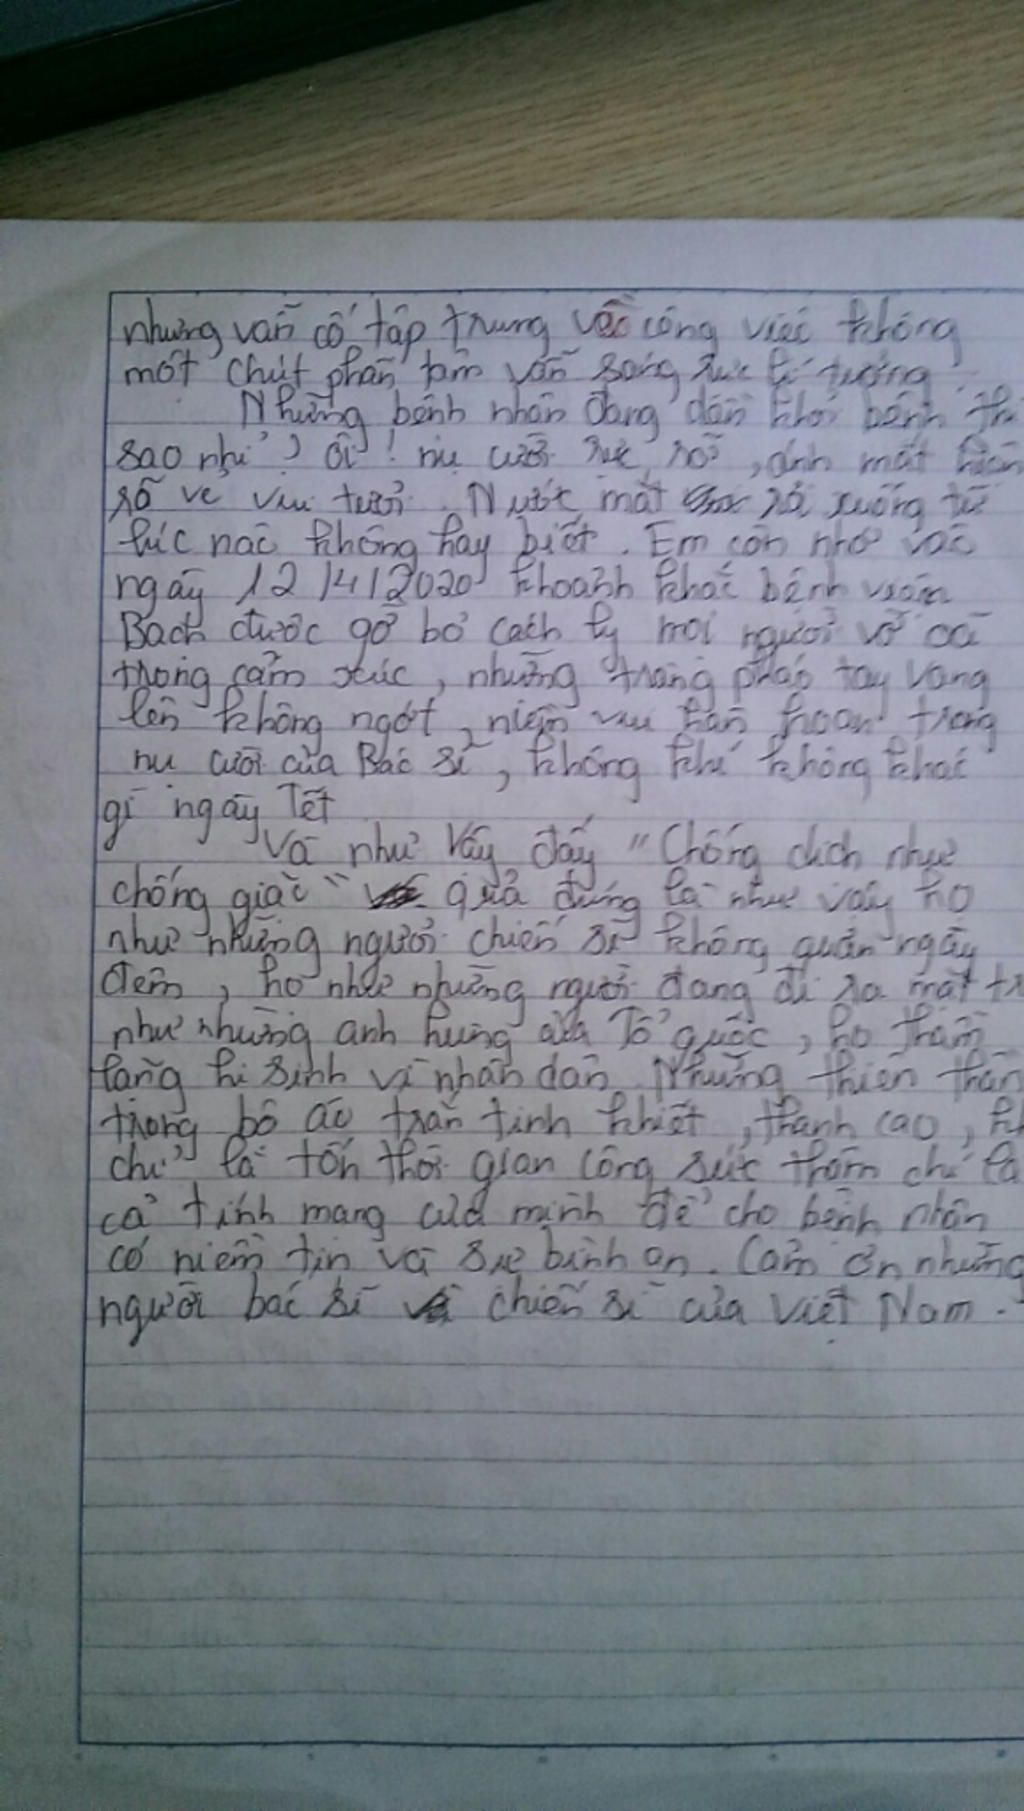 nhưng vẫn cố tập trung về công việc không
một chút phân tâm vẫn sáng rực lí tưởng
Những bệnh nhân đang dần khỏi bệnh thì
sao nhỉ? Ôi! nụ cười rực rỡ, ánh mắt hiện
rõ vẻ vui tươi. Nước mắt rơi xuống từ
lúc nào không hay biết. Em còn nhớ vào
ngày 12/4/2020 khoảnh khắc bệnh viện
Bạch được gỡ bỏ cách ly mọi người vỡ oà
trong cảm xúc, những tràng pháo tay vang
lên không ngớt, niềm vui hân hoan trong
nụ cười của Bác sĩ, không khí không khác
gì ngày Tết
Và như vậy đấy "Chống dịch như
chống giặc" quả đúng là như vậy họ
như những người chiến sĩ không quản ngày
đêm, họ như những người đang đi ra mặt tr
như những anh hùng của Tổ quốc, họ thầm
lặng hi sinh vì nhân dân. Những thiên thần
trong bộ áo trắn tinh khiết, thanh cao, kh
chỉ là tốn thời gian công sức thậm chí là
cả tính mạng của mình để cho bệnh nhân
có niềm tin và sự bình an. Cảm ơn những
người bác sĩ chiến sĩ của Việt Nam.